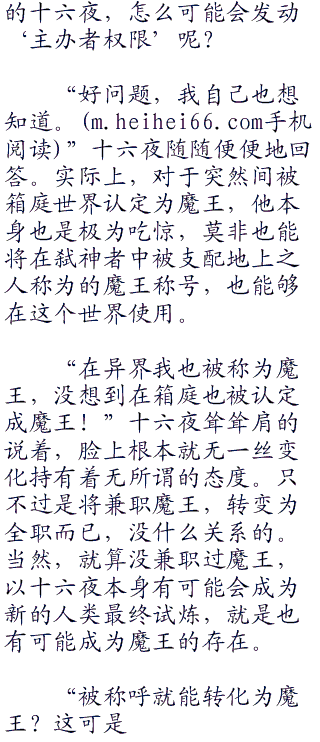 的十六夜，怎么可能会发动
‘主办者权限’呢？
“好问题，我自己也想
知道。(m.heihei66.com手机
阅读)”十六夜随随便便地回
答。实际上，对于突然间被
箱庭世界认定为魔王，他本
身也是极为吃惊，莫非也能
将在弑神者中被支配地上之
人称为的魔王称号，也能够
在这个世界使用。
“在异界我也被称为魔
王，没想到在箱庭也被认定
成魔王！”十六夜耸耸肩的
说着，脸上根本就无一丝变
化持有着无所谓的态度。只
不过是将兼职魔王，转变为
全职而已，没什么关系的。
当然，就算没兼职过魔王，
以十六夜本身有可能会成为
新的人类最终试炼，就是也
有可能成为魔王的存在。
“被称呼就能转化为魔
王？这可是